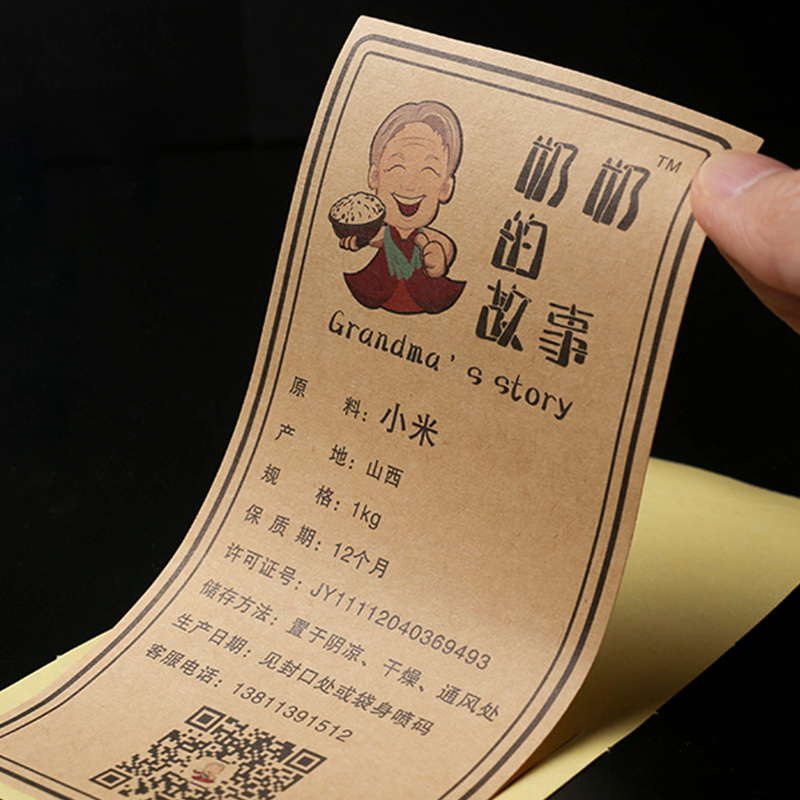 奶奶 TM
的
故事
Grandma's story
原 料：小米
产 地：山西
规 格：1kg
保 质 期：12个月
许可证号：JY11112040369493
储存方法：置于阴凉、干燥、通风处
生产日期：见封口处或袋身喷码
客服电话：13811391512